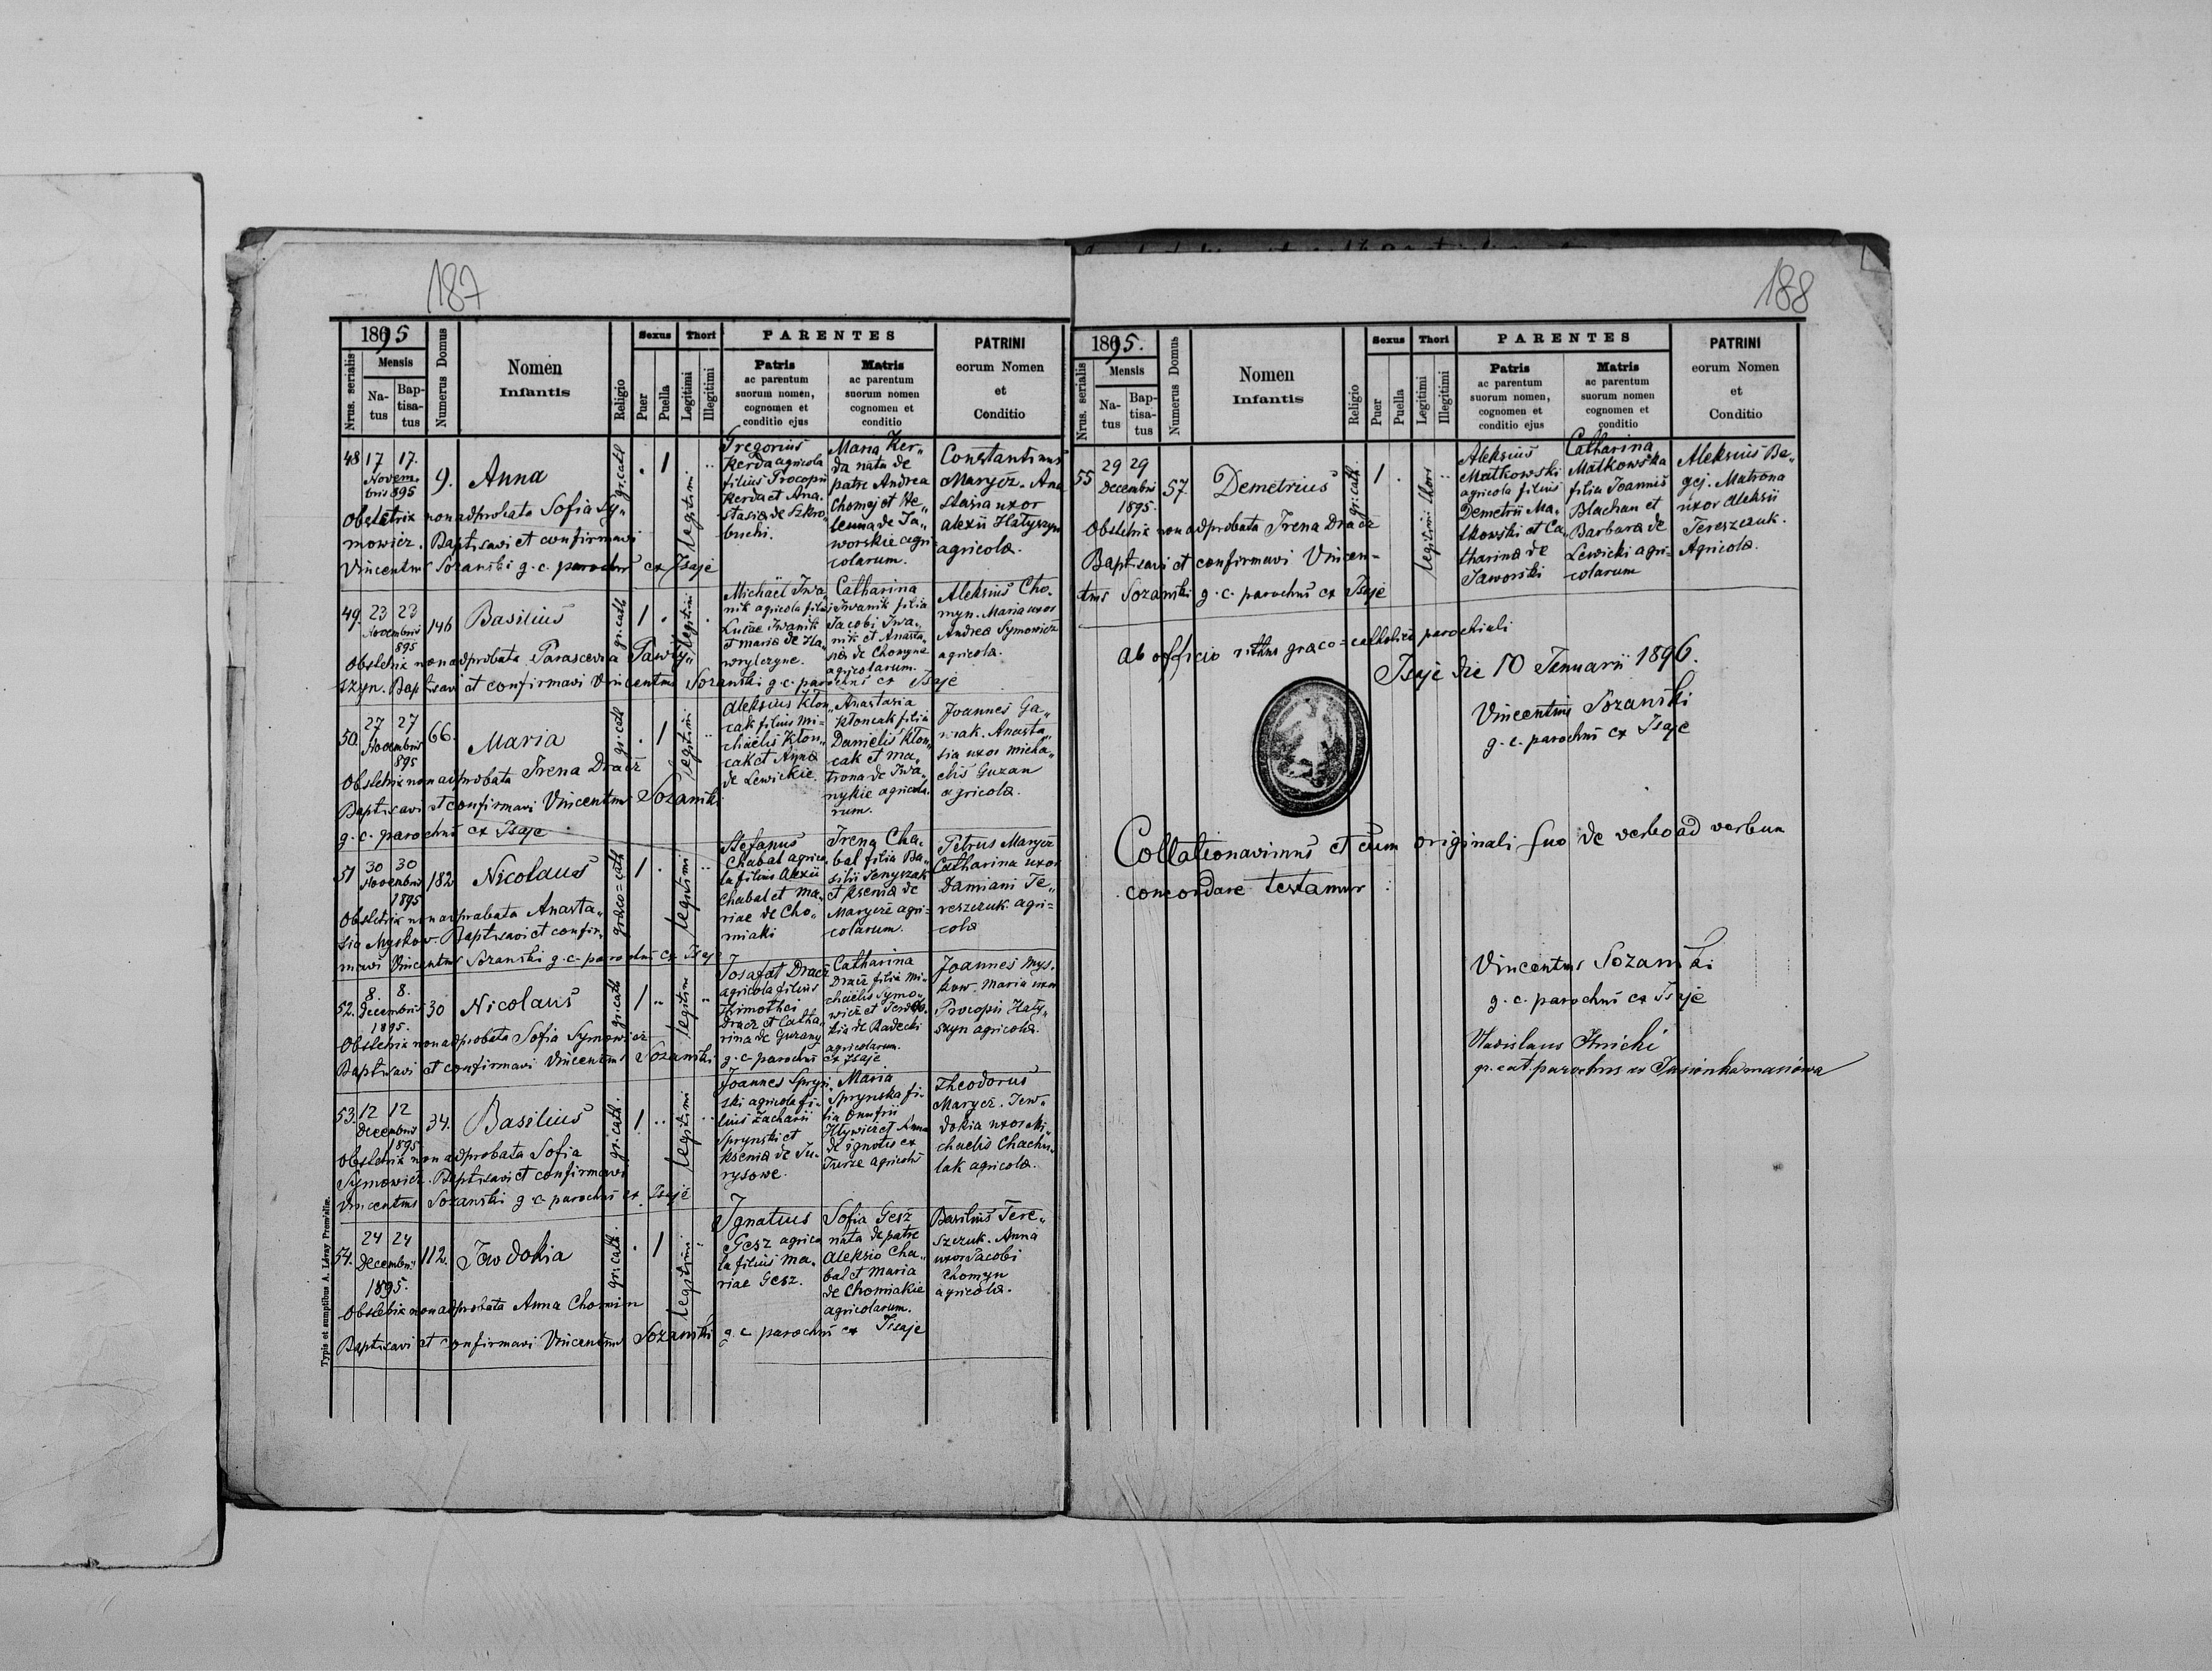 187
1895
Nrus. serialis
Mensis
Na-
tus
Bap-
tisa-
tus
Numerus Domus
Nomen
Infantis
Religio
Sexus
Puer
Puella
Thori
Legitimi
Illegitimi
PARENTES
Patris
ac parentum
suorum nomen,
cognomen et
conditio ejus
Matris
ac parentum
suorum nomen
cognomen et
conditio
PATRINI
eorum Nomen
et
Conditio
48
17 17.
Novem-
bris 895
9.
Anna
gr. cath
. 1
Legitimi
Gregorius
Kerda agricola
filius Procopii
Kerda et Ana-
stasia de Szkro-
buchi.
Maria Ker„
da nata de
patre Andrea
Chomej et He„
lenna de Ja„
worskie agri-
colarum.
Constantinus
Marycz. Ana
stasia uxor
Alexii Hatyszyn
agricola.
Obstetrix non adprobata Sofia Sy„
mowicz. Baptisavi et confirmavi
Vincentius Sozanski g. c. parochus ex Isaje
49.
23 23
Novembris
895
146
Basilius
gr. cath
1 .
Legitimi
Michaël Iwa„
nik agricola filius
Lucae Iwanik
et Maria de Ha„
wrylczyne.
Catharina
Iwanik filia
Jacobi Iwa„
nik et Anasta„
sia de Chomyne
agricolarum.
Aleksius Cho„
myn. Maria uxor
Andrea Symowicz
agricola.
Obstetrix non adprobata Parascevia Pawły„
szyn. Baptisavi et confirmavi Vincentius Sozanski g. c. parochus ex Isaje
50.
27 27
Novembris
895
66.
Maria
gr. cath
. 1
legitimi
Aleksius Kłon„
cak filius Mi-
chaëlis Kłon„
cak et Anna
de Lewickie.
Anastasia
Kłoncak filia
Danielis Kłon„
cak et Ma„
trona de Iwa„
nykie agricola
rum.
Joannes Ga„
wrak. Anasta„
sia uxor Micha„
elis Guzan
agricola.
Obstetrix non adprobata Irena Dracz
Baptisavi et confirmavi Vincentius Sozanski
g. c. parochus ex Isaje
51
30 30
Novembris
1895
182
Nicolaus
graeco=cath
1 .
legitimi
Stefanus
Chabal agrico
la filius Alexii
Chabal et Ma„
riae de Cho„
miaki
Irena Cha„
bal filia Ba„
silii Senyszak
et Ksenia de
Marycze agri=
colarum.
Petrus Marycz
Catharina uxor
Damiani Te„
reszczuk. agri=
cola
Obstetrix non adprobata Anasta„
sia Myskow. Baptisavi et confir„
mavi Vincentius Sozanski g. c. parochus ex Isaje
52.
8. 8.
Decembris
1895.
30
Nicolaus
gr. cath
1 ..
legitimi
Josafat Dracz
agricola filius
Timothei
Dracz et Catha„
rina de Guzany
Catharina
Dracz filia Mi„
chaëlis Symo„
wicz et Jewdo
kia de Radecki
agricolarum.
Joannes Mys„
kow. Maria uxor
Procopii Haty„
szyn agricola.
Obstetrix non adprobata Sofia Symowicz
Baptisavi et confirmavi Vincentius Sozanski g. c. parochus ex Isaje
53.
12 12
Decembris
1895
34.
Basilius
gr. cath.
1 ..
legitimi
Joannes Spryn„
ski agricola fi-
lius Zacharii
Sprynski et
Ksenia de Ju-
rysowe.
Maria
Sprynska fi-
lia Onufrii
Hływicz et Anna
de ignotis ex
Turze agricolis
Theodorus
Marycz. Jew„
dokia uxor Mi„
chaelis Chachu„
lak agricola.
Obstetrix non adprobata Sofia
Symowicz. Baptisavi et confirmavi
Vincentius Sozanski g. c. parochus ex Isaje
54.
24 24
Decembris
1895.
112.
Jewdokia
gr. cath.
. 1
legitimi
Ignatius
Gesz agrico
la filius Ma„
riae Gesz.
Sofia Gesz
nata de patre
Aleksio Cha„
bal et Maria
de Chomiakie
agricolarum.
Basilius Tere„
szczuk. Anna
uxor Jacobi
Chomyn
agricola.
Obstetrix non adprobata Anna Chomin
Baptisavi et confirmavi Vincentius Sozanski g. c. parochus ex Isaje
Typis et sumptibus A. Łåvay Premisliae.
188
1895.
Nrus. serialis
Mensis
Na-
tus
Bap-
tisa-
tus
Numerus Domus
Nomen
Infantis
Religio
Sexus
Puer
Puella
Thori
Legitimi
Illegitimi
PARENTES
Patris
ac parentum
suorum nomen,
cognomen et
conditio ejus
Matris
ac parentum
suorum nomen
cognomen et
conditio
PATRINI
eorum Nomen
et
Conditio
55
29 29
Decembris
1895.
57.
Demetrius
gr. cath.
1 .
legitimi thori
Aleksius
Matkowski
agricola filius
Demetrii Ma„
tkowski et Ca„
tharina de
Jaworski
Catharina
Matkowska
filia Joannis
Blachan et
Barbara de
Lewicki agri-
colarum
Aleksius Be„
gej. Matrona
uxor Aleksii
Tereszczuk.
Agricola.
Obstetrix non adprobata Irena Dracz
Baptisavi et confirmavi Vincen-
tius Sozanski g. c. parochus ex Isaje
Ab officio rithus graeco=catholici parochiali
Isaje die 10 Januarii 1896.
Vincentius Sozanski
g. c. parochus ex Isaje
Collationavimus et cum originali suo de verbo ad verbum
concordare testamur :
Vincentius Sozanski
g. c. parochus ex Isaje
gr. cat. parochus ex